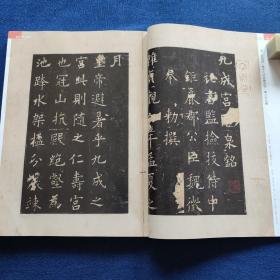 九成宮醴泉銘
祕書監檢校侍中
鉅鹿郡公臣魏徵
奉勅撰
維貞觀六年孟夏之
月
皇帝避暑乎九成之
宮此則隨之仁壽宮
也冠山抗殿絕壑爲
池跨水架楹分巖竦